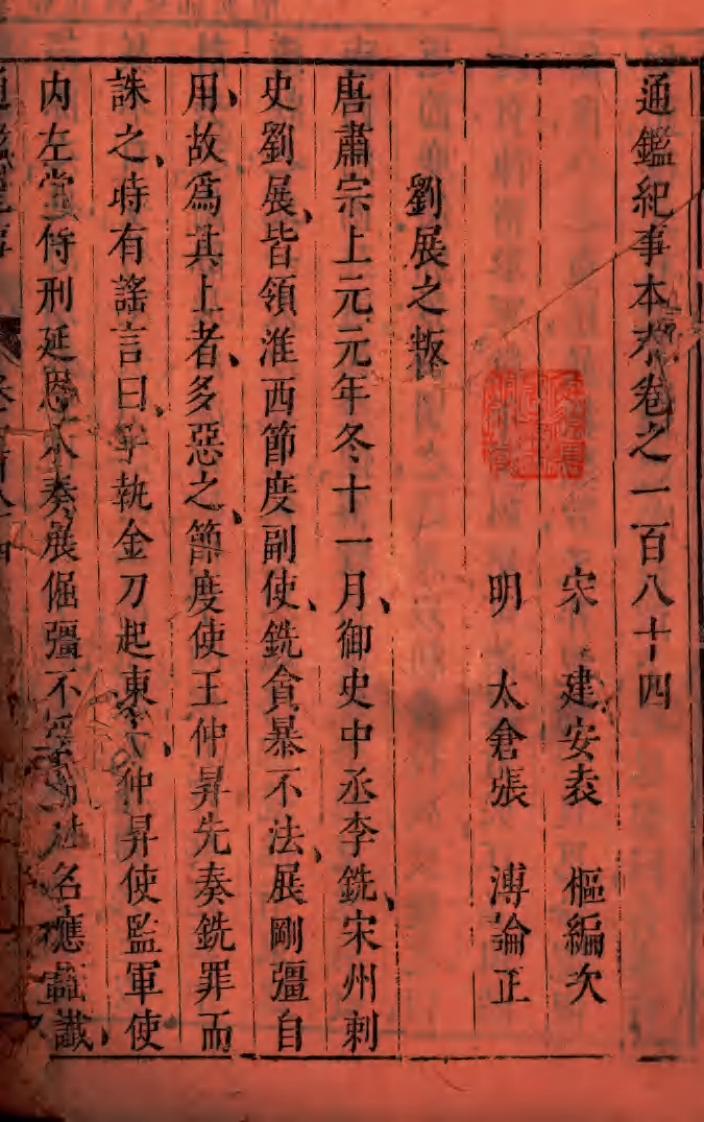 通鑑紀事本末卷之一百八十四
宋 建安袁 樞編次
明 太倉張 溥論正
劉展之叛
唐肅宗上元元年冬十一月、御史中丞李銑、宋州刺
史劉展、皆領淮西節度副使、銑貪暴不法、展剛彊自
用、故爲其上者、多惡之、節度使王仲昇先奏銑罪而
誅之、時有謠言曰、手執金刀起東方、仲昇使監軍使
内左常侍邢延恩入奏展倔彊不 名應謠讖、